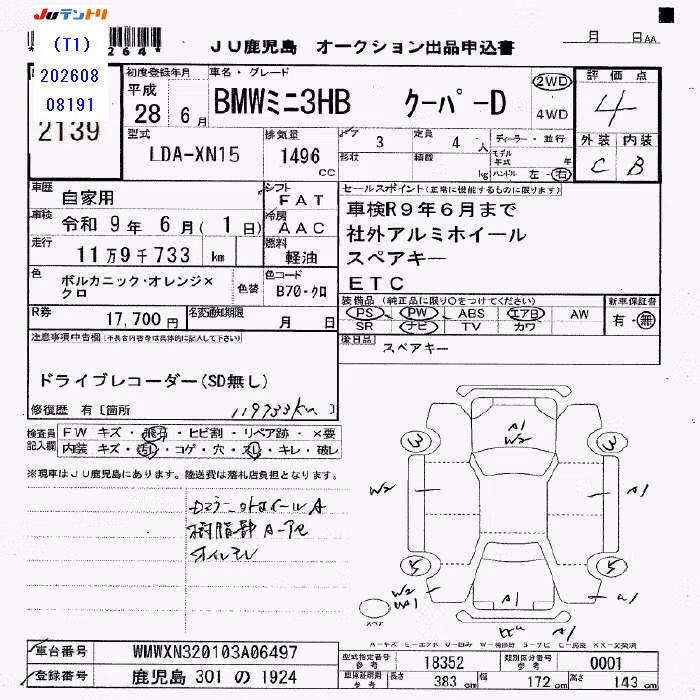 JUテントリ
(T1)
202608
08191
2139
JU鹿児島 オークション出品申込書
月 日 AA
初度登録年月
平成
28 6月
車名・グレード
BMWミニ3HB クーパーD
2WD
4WD
評価点
4
外装 内装
C B
型式
LDA-XN15
排気量
1496
cc
ドア 3
形状
定員 4 人
積載 kg
ディーラー・並行
モデル年式 年
ハンドル 左・右
車歴
自家用
車検
令和 9年 6月( 1日)
走行
11万9千733 km
シフト
FAT
冷房
AAC
燃料
軽油
セールスポイント(正常に機能するものに限ります)
車検R9年6月まで
社外アルミホイール
スペアキー
ETC
色
ボルカニック・オレンジ×
クロ
色替
色コード
B70・クロ
R券
17,700円
名変通知期限
月 日
装備品(純正品に限り○をつけてください)
PS PW ABS エアB AW
SR ナビ TV カワ
新車保証書
有・無
後日品
スペアキー
注意事項申告欄
ドライブレコーダー(SD無し)
修復歴 有〔箇所 119733km〕
検査員
記入欄
FW キズ・飛石・ヒビ割・リペア跡・×要
内装 キズ・汚レ・コゲ・穴・スレ・キレ・破レ
※現車はJU鹿児島にあります。陸送費は落札店負担となります。
樹脂部
A1
W2
3
3
W2
A1
5
5
W2
A1
A1
スペア
車台番号
WMWXN320103A06497
登録番号
鹿児島 301 の 1924
型式指定番号
参考
18352
類別区分番号
参考
0001
長さ 383 cm
幅 172 cm
高さ 143 cm